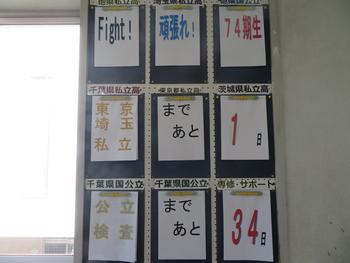 他県私立高
埼玉県私立高
Fight!
頑張れ!
74期生
千葉県私立高
東京都私立高
茨城県私立高
東京
埼玉
私立
まで
あと
1日
千葉県国公立
千葉県国公立
専修・サポート
公立
検査
まで
あと
34日